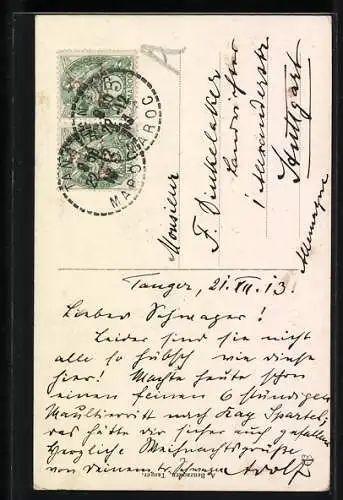 TANGER
MAROC
MAROC
A
Monsieur
F. Dinkelaker
Landrichter
Stuttgart
Allemagne
Tanger, 21. XII. 13.
Lieber Schwager!
Leider sind sie nicht
alle so hübsch wie diese
hier! Machte heute schon
einen feinen 6 stündigen
Maultierritt nach Kap Spartel;
das hätte dir sicher auch gefallen
Herzliche Weihnachtsgrüße
von deinem Schwager Adolf
Tanger.